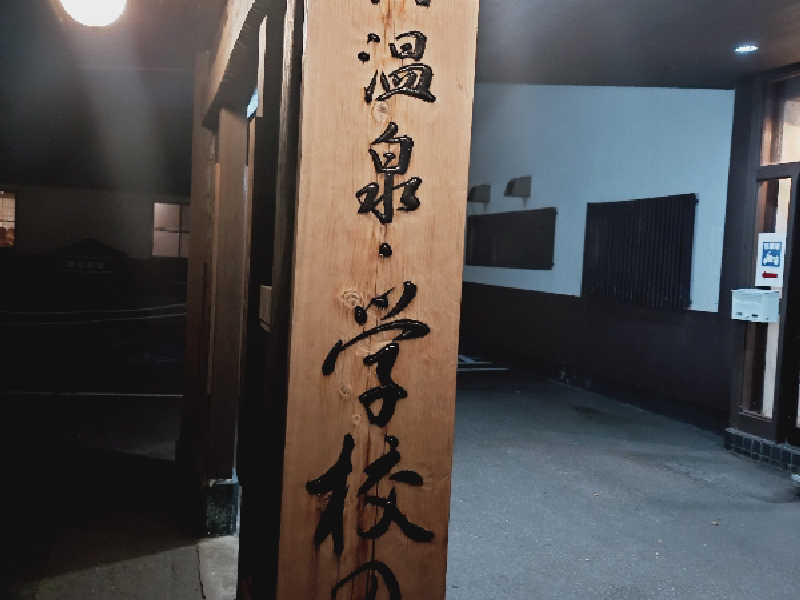 温泉・学校の